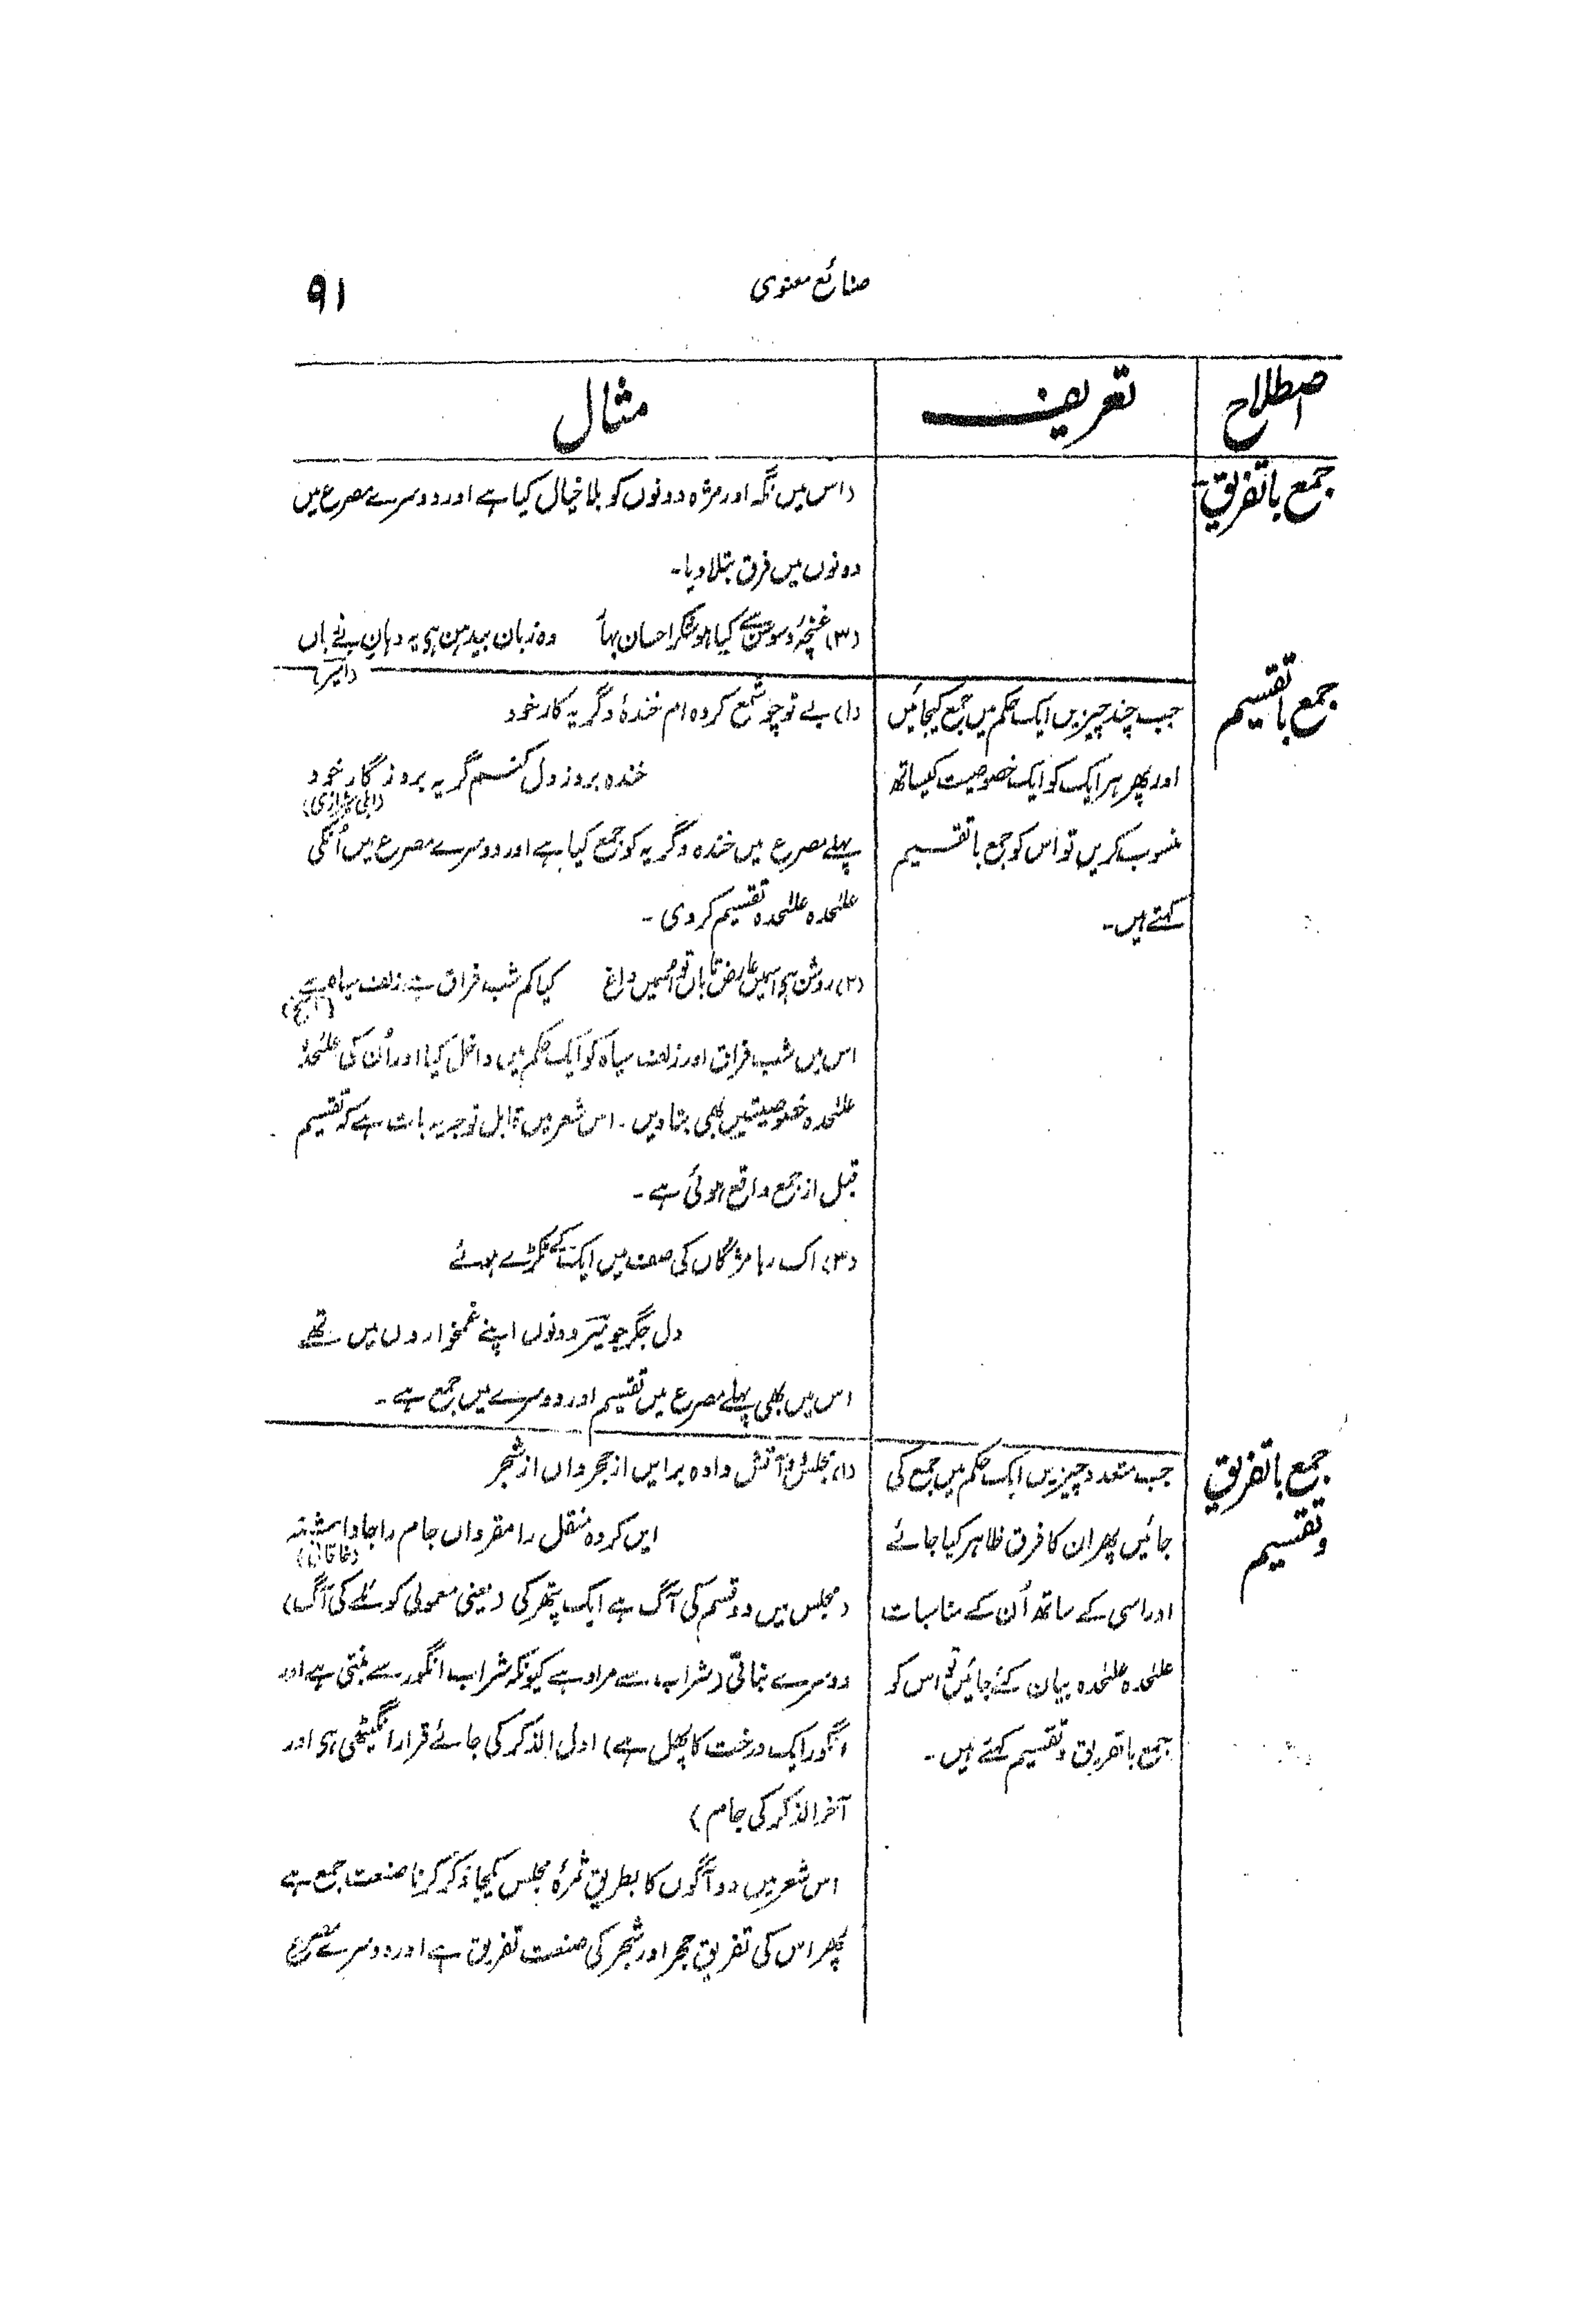 صنائع معنوی
۹۱
اصطلاح
تعریف
مثال
جمع با تفریق
(اس میں نگہ اور مژہ دونوں کو بلا خیال کیا ہے اور دوسرے مصرع میں
دونوں میں فرق بتلا دیا۔
(۳) غنچۂ و سوسن سے کیا ہو شکر احسان بہا وہ زبان بیدہن ہی یہ دہان بے زباں
(اسیر)
جمع با تقسیم
جب چند چیزیں ایک حکم میں جمع کیجائیں
اور پھر ہر ایک کو ایک خصوصیت کیساتھ
منسوب کریں تو اس کو جمع با تقسیم
کہتے ہیں۔
(۱) بے تو چو شمع کردہ ام خندۂ و گریہ کار خود
خندہ بروز دل کنم گریہ بروزگار خود
(اہلی شیرازی)
پہلے مصرع میں خندہ و گریہ کو جمع کیا ہے اور دوسرے مصرع میں اُنکی
علٰحدہ علٰحدہ تقسیم کردی۔
(۲) روشن ہی اسمیں عارض تاباں تو اسمیں داغ کیا کم شب فراق سے زلف سیاہ ہے
اس میں شب فراق اور زلف سیاہ کو ایک حکم میں داخل کیا اور اُن کی علٰحدہ
علٰحدہ خصوصیتیں بھی بتا دیں۔ اس شعر میں قابل توجہ یہ بات ہے کہ تقسیم
قبل از جمع واقع ہوئی ہے۔
(۳) اک رہا مژگاں کی صف میں ایک کے ٹکڑے ہوئے
دل جگر جو میر دونوں اپنے غمخواروں میں تھے
اس میں بھی پہلے مصرع میں تقسیم اور دوسرے میں جمع ہے۔
جمع با تفریق
و تقسیم
جب متعدد چیزیں ایک حکم میں جمع کی
جائیں پھر ان کا فرق ظاہر کیا جائے
اور اسی کے ساتھ اُن کے مناسبات
علٰحدہ علٰحدہ بیان کئے جائیں تو اس کو
جمع با تفریق و تقسیم کہتے ہیں۔
(۱) مجلس دو آتش دادہ بر ایں از حجر واں از شجر
ایں کردہ منقل را مقر واں جام را جا داشتہ
(خاقانی)
(مجلس میں دو قسم کی آگ ہے ایک پتھر کی (یعنی معمولی کوئلے کی آگ)
دوسرے نباتی (شراب) سے مراد ہے کیونکہ شراب انگور سے بنتی ہے اور
انگور ایک درخت کا پھل ہے) اول الذکر کی جائے قرار انگیٹھی ہی اور
آخر الذکر کی جام)
اس شعر میں دو آگوں کا بطریق ثمرۂ مجلس یکجا ذکر کرنا صنعت جمع ہے
پھر اس کی تفریق حجر اور شجر کی صنعت تفریق ہے اور دوسرے مصرع